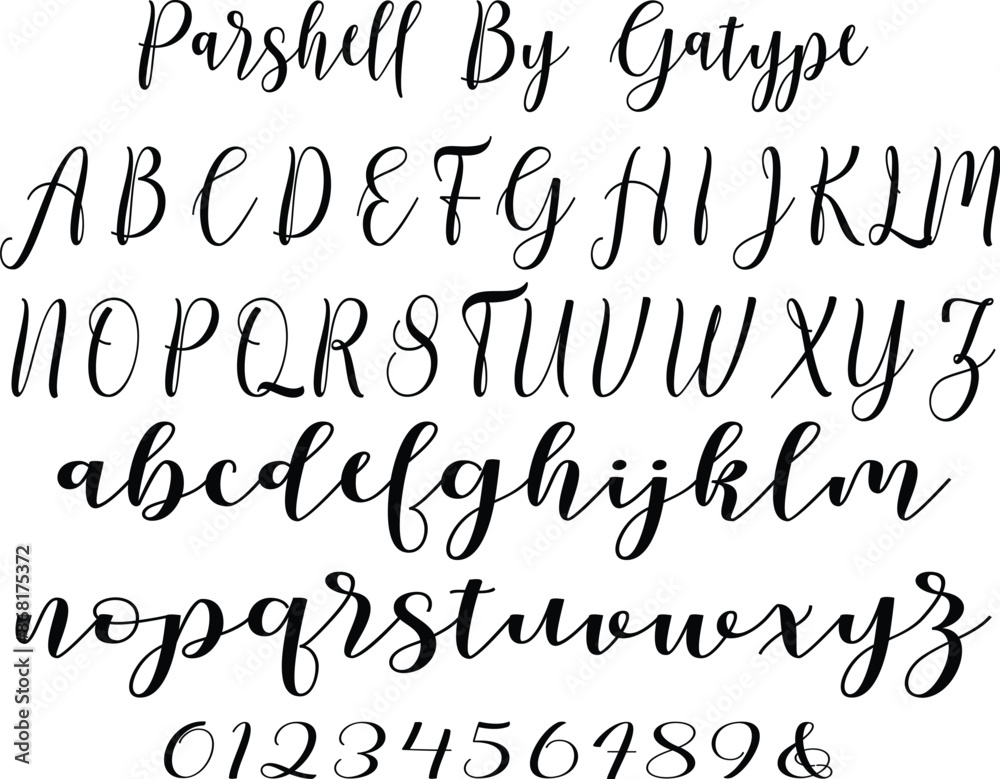 Parshell By Gatype
ABCDEFGHIJKLM
NOPQRSTUVWXYZ
abcdefghijklm
nopqrstuvwxyz
0123456789&
Adobe Stock | #868175372